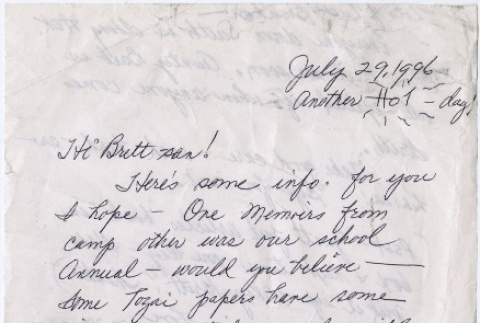 July 29, 1996
Another HOT - day!
Hi Brett san!
Here's some info. for you
I hope - One Memoirs from
camp other was our school
Annual - would you believe -
Some Tozai papers have some